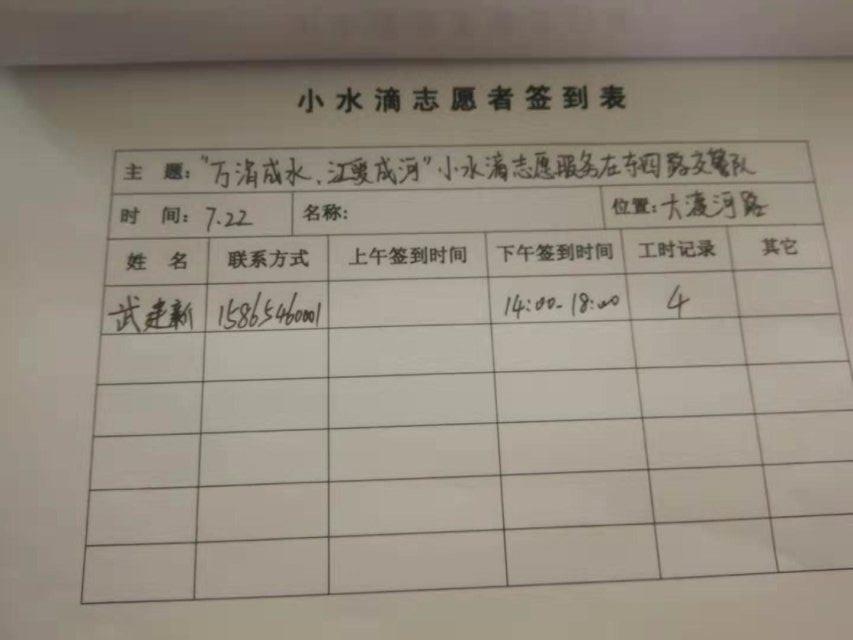 小水滴志愿者签到表
主 题: "万涓成水、汇爱成河"小水滴志愿服务在东四路交警队
时 间: 7.22 名称: 位置: 大渡河路
姓 名 联系方式 上午签到时间 下午签到时间 工时记录 其它
武建新 15865460001 14:00-18:00 4